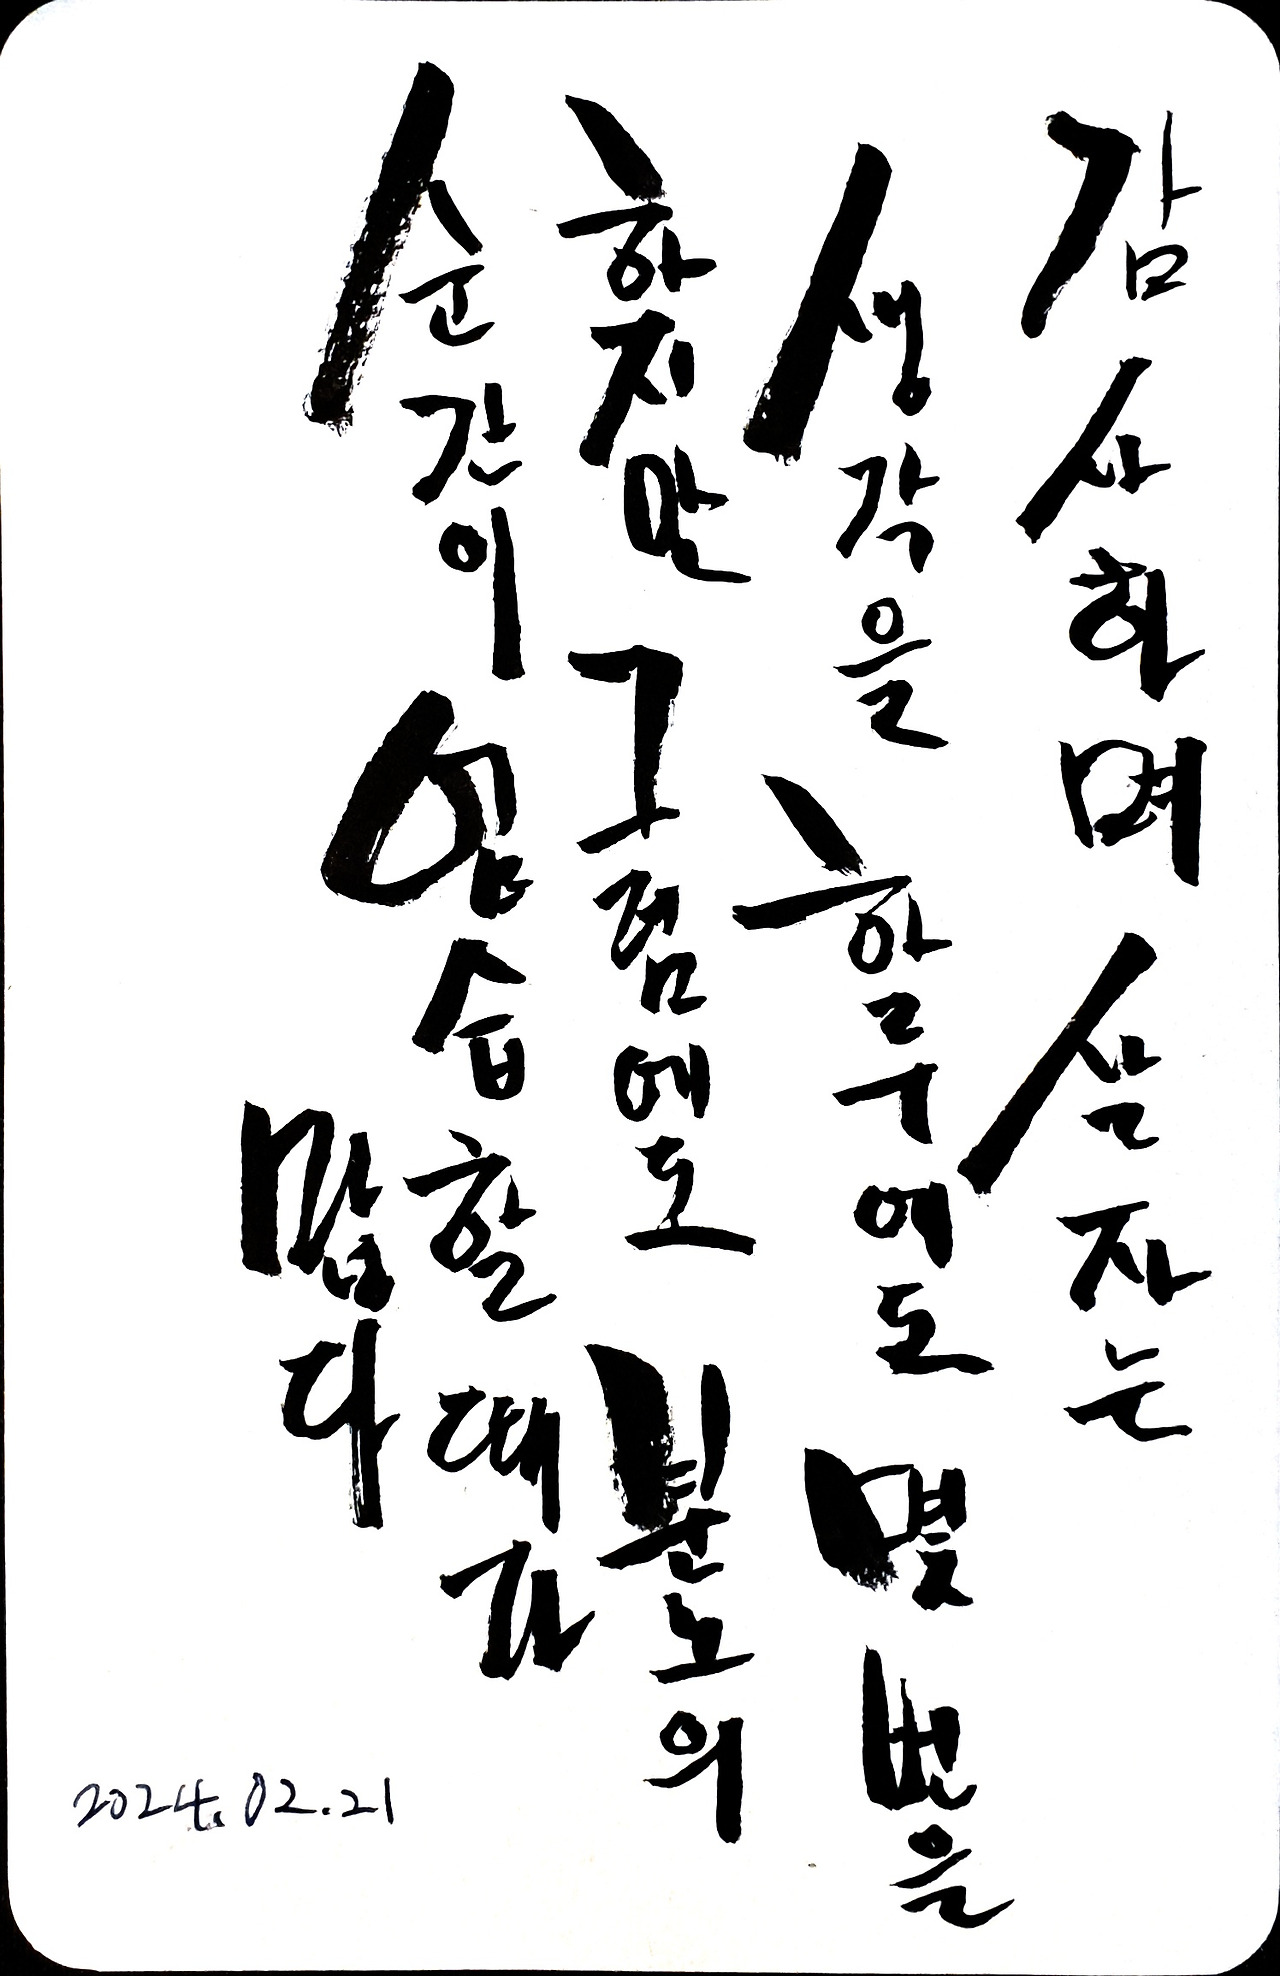 감사하며 살자는
생각을 하루에도 몇 번을
하지만 그럼에도 분노의
순간이 엄습할 때가
많다
2024.02.21